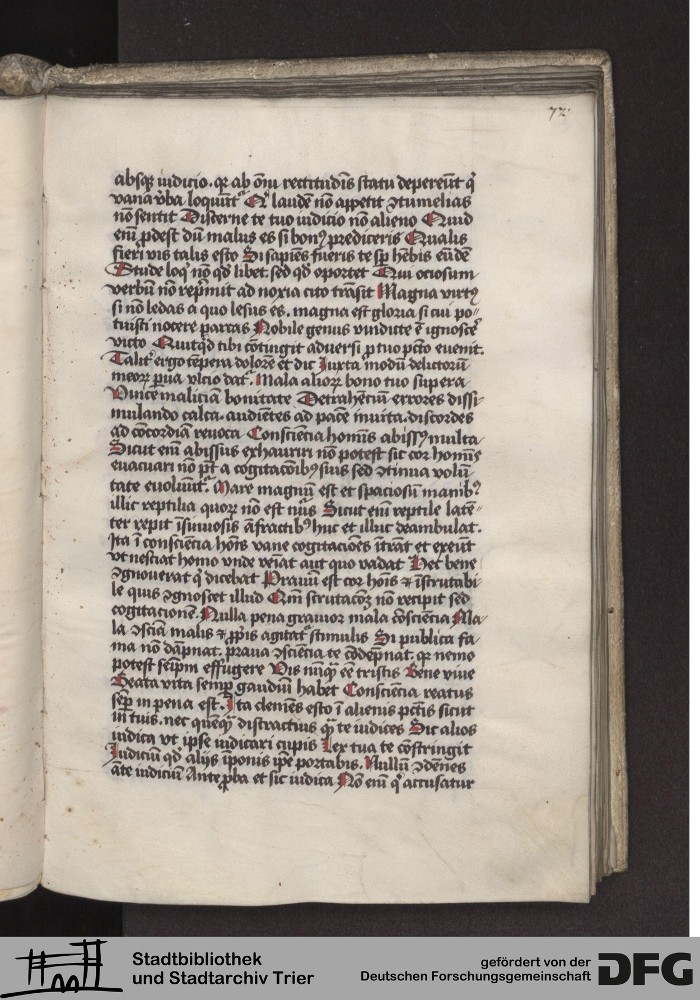 72
absqꝫ iudicio. qꝛ ab om̄i rectitudīs statu depereūt q̇
vana v̓ba loquūt᷑ Qi laudē nō appetit ꝯtumelias
nō sentit Discerne te tuo iudicio nō alieno Quid
em̄ ꝓdest dū malus es si bonꝰ prediceris Qualis
fieri vis talis esto Si sapiēs fueris te sp̄ hēbis eūdē
Stude loqͥ nō qd̄ libet. sed qd̄ oportet Qui ociosum
verbū nō rep̓mit ad noxia cito trāsit Magna virtꝰ
si nō ledas a quo lesus es. magna est gloria si cui po⸗
tuisti nocere parcas Nobile genus vindicte ē ignosce᷑
victo Quitqͥd tibi cōtingit adversi ꝓ tuo pctō evenit.
Talit᷑ ergo tēpera dolorē et dic Juxta modū delictorū
meoꝝ ꝑua vlcio dat᷑. Mala alioꝝ bono tuo supera
Vince maliciam bonitate Detrahēciū errores dissi⸗
mulando calca. audiētes ad pacē inuita. discordes
ad cōcordiā reuoca Consciēcia homīs abissꝰ multa
Sicut em̄ abissus exhauriri nō potest sic cor homīs
euacuari nō pt̄ a cogitacōibꝰ suis sed ꝯtinua volū⸗
tate euoluūt᷑. Mare magnū est et spaciosū manibꝰ
illic reptilia quoꝝ nō est nūs Sicut em̄ reptile late⸗
ter repit ī sinuosis āfractibꝰ huc et illuc deambulat.
Ita ī consciēcia hōīs vane cogitaciōes ītrāt et exeūt
vt nesciat homo vnde veīat aut quo vadat Hec bene
ꝯgnouerat qͥ dicebat Prauū est cor hōīs ⁊ īscrutabi⸗
le quis ꝯgnoscet illud Qm̄ scrutacōꝫ nō recipit sed
cogitacionē. Nulla pena grauior mala cōsciēcia Ma⸗
la ꝯsciā malis ⁊ ꝓpͥis agitat᷑ stimulis Si publica fa⸗
ma nō dāpnat. praua ꝯsciēcia te cōdēpnat. qꝛ nemo
potest seip̄m effugere Vis nūqͣꝫ eē tristis Bene viue
Beata vita semꝑ gaudiū habet Consciēcia reatus
semꝑ in pena est. Ita clemēs esto ī alienis pctīs sicut
in tuis. nec quēqͣꝫ distractius qͣꝫ te iudices Sic alios
iudica vt ipse iudicari cupis Lex tua te cōstringit
Judiciū qd̄ alijs īponis ip̄e portabis. Nullū ꝯdēnes
āte iudiciū Ante ꝓba et sic iudica Nō em̄ qͥ accusatur
Stadtbibliothek
und Stadtarchiv Trier
gefördert von der
Deutschen Forschungsgemeinschaft
DFG